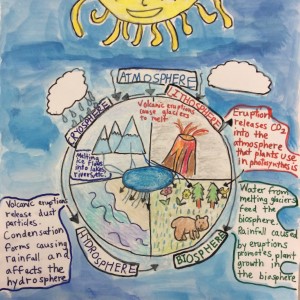 ATMOSPHERE
CRYOSPHERE
LITHOSPHERE
Volcanic eruptions
cause glaciers
to melt
Melting
ice flows
into lakes,
rivers, etc.
Eruption
releases CO2
into the
atmosphere
that plants use
in photosynthesis
Volcanic eruptions
release dust
particles.
Condensation
forms causing
rainfall and
affects the
hydrosphere
Water from
melting glaciers
feed the
biosphere.
Rainfall caused
by eruptions
promotes plant
growth in
the biosphere
HYDROSPHERE
BIOSPHERE